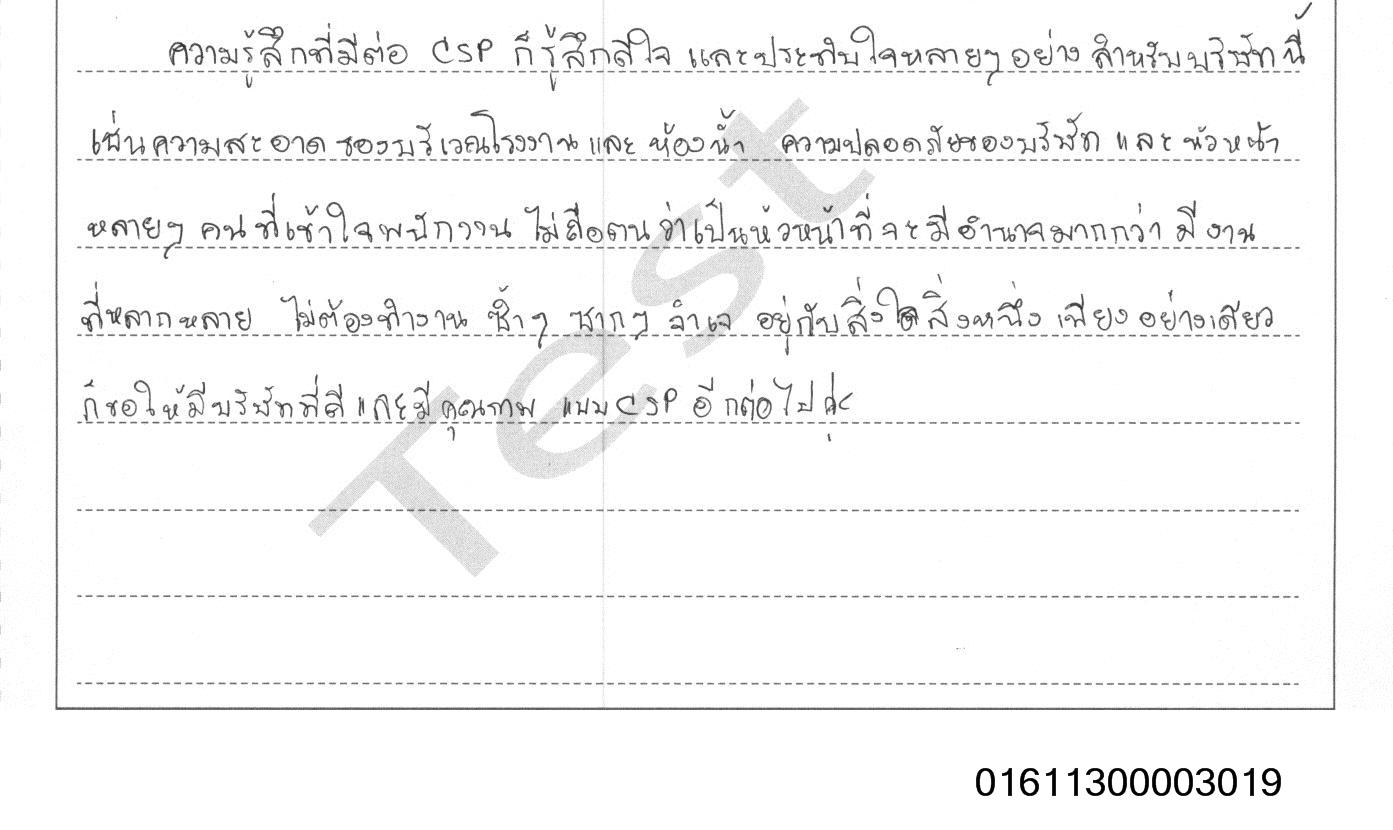 ความรู้สึกที่มีต่อ CSP ก็รู้สึกดีใจ และประทับใจหลายๆ อย่าง สำหรับบริษัทนี้
เช่นความสะอาดของบริเวณโรงงาน และ ห้องน้ำ ความปลอดภัยของบริษัท และ หัวหน้า
หลายๆ คนที่เข้าใจพนักงาน ไม่ถือตนว่าเป็นหัวหน้าที่จะมีอำนาจมากกว่า มีงาน
ที่หลากหลาย ไม่ต้องทำงาน ซ้ำๆ ซากๆ จำเจ อยู่กับสิ่งใดสิ่งหนึ่ง เพียงอย่างเดียว
ก็ขอให้มีบริษัทที่ดี และมีคุณภาพ แบบ CSP อีกต่อไปค่ะ
Test
01611300003019